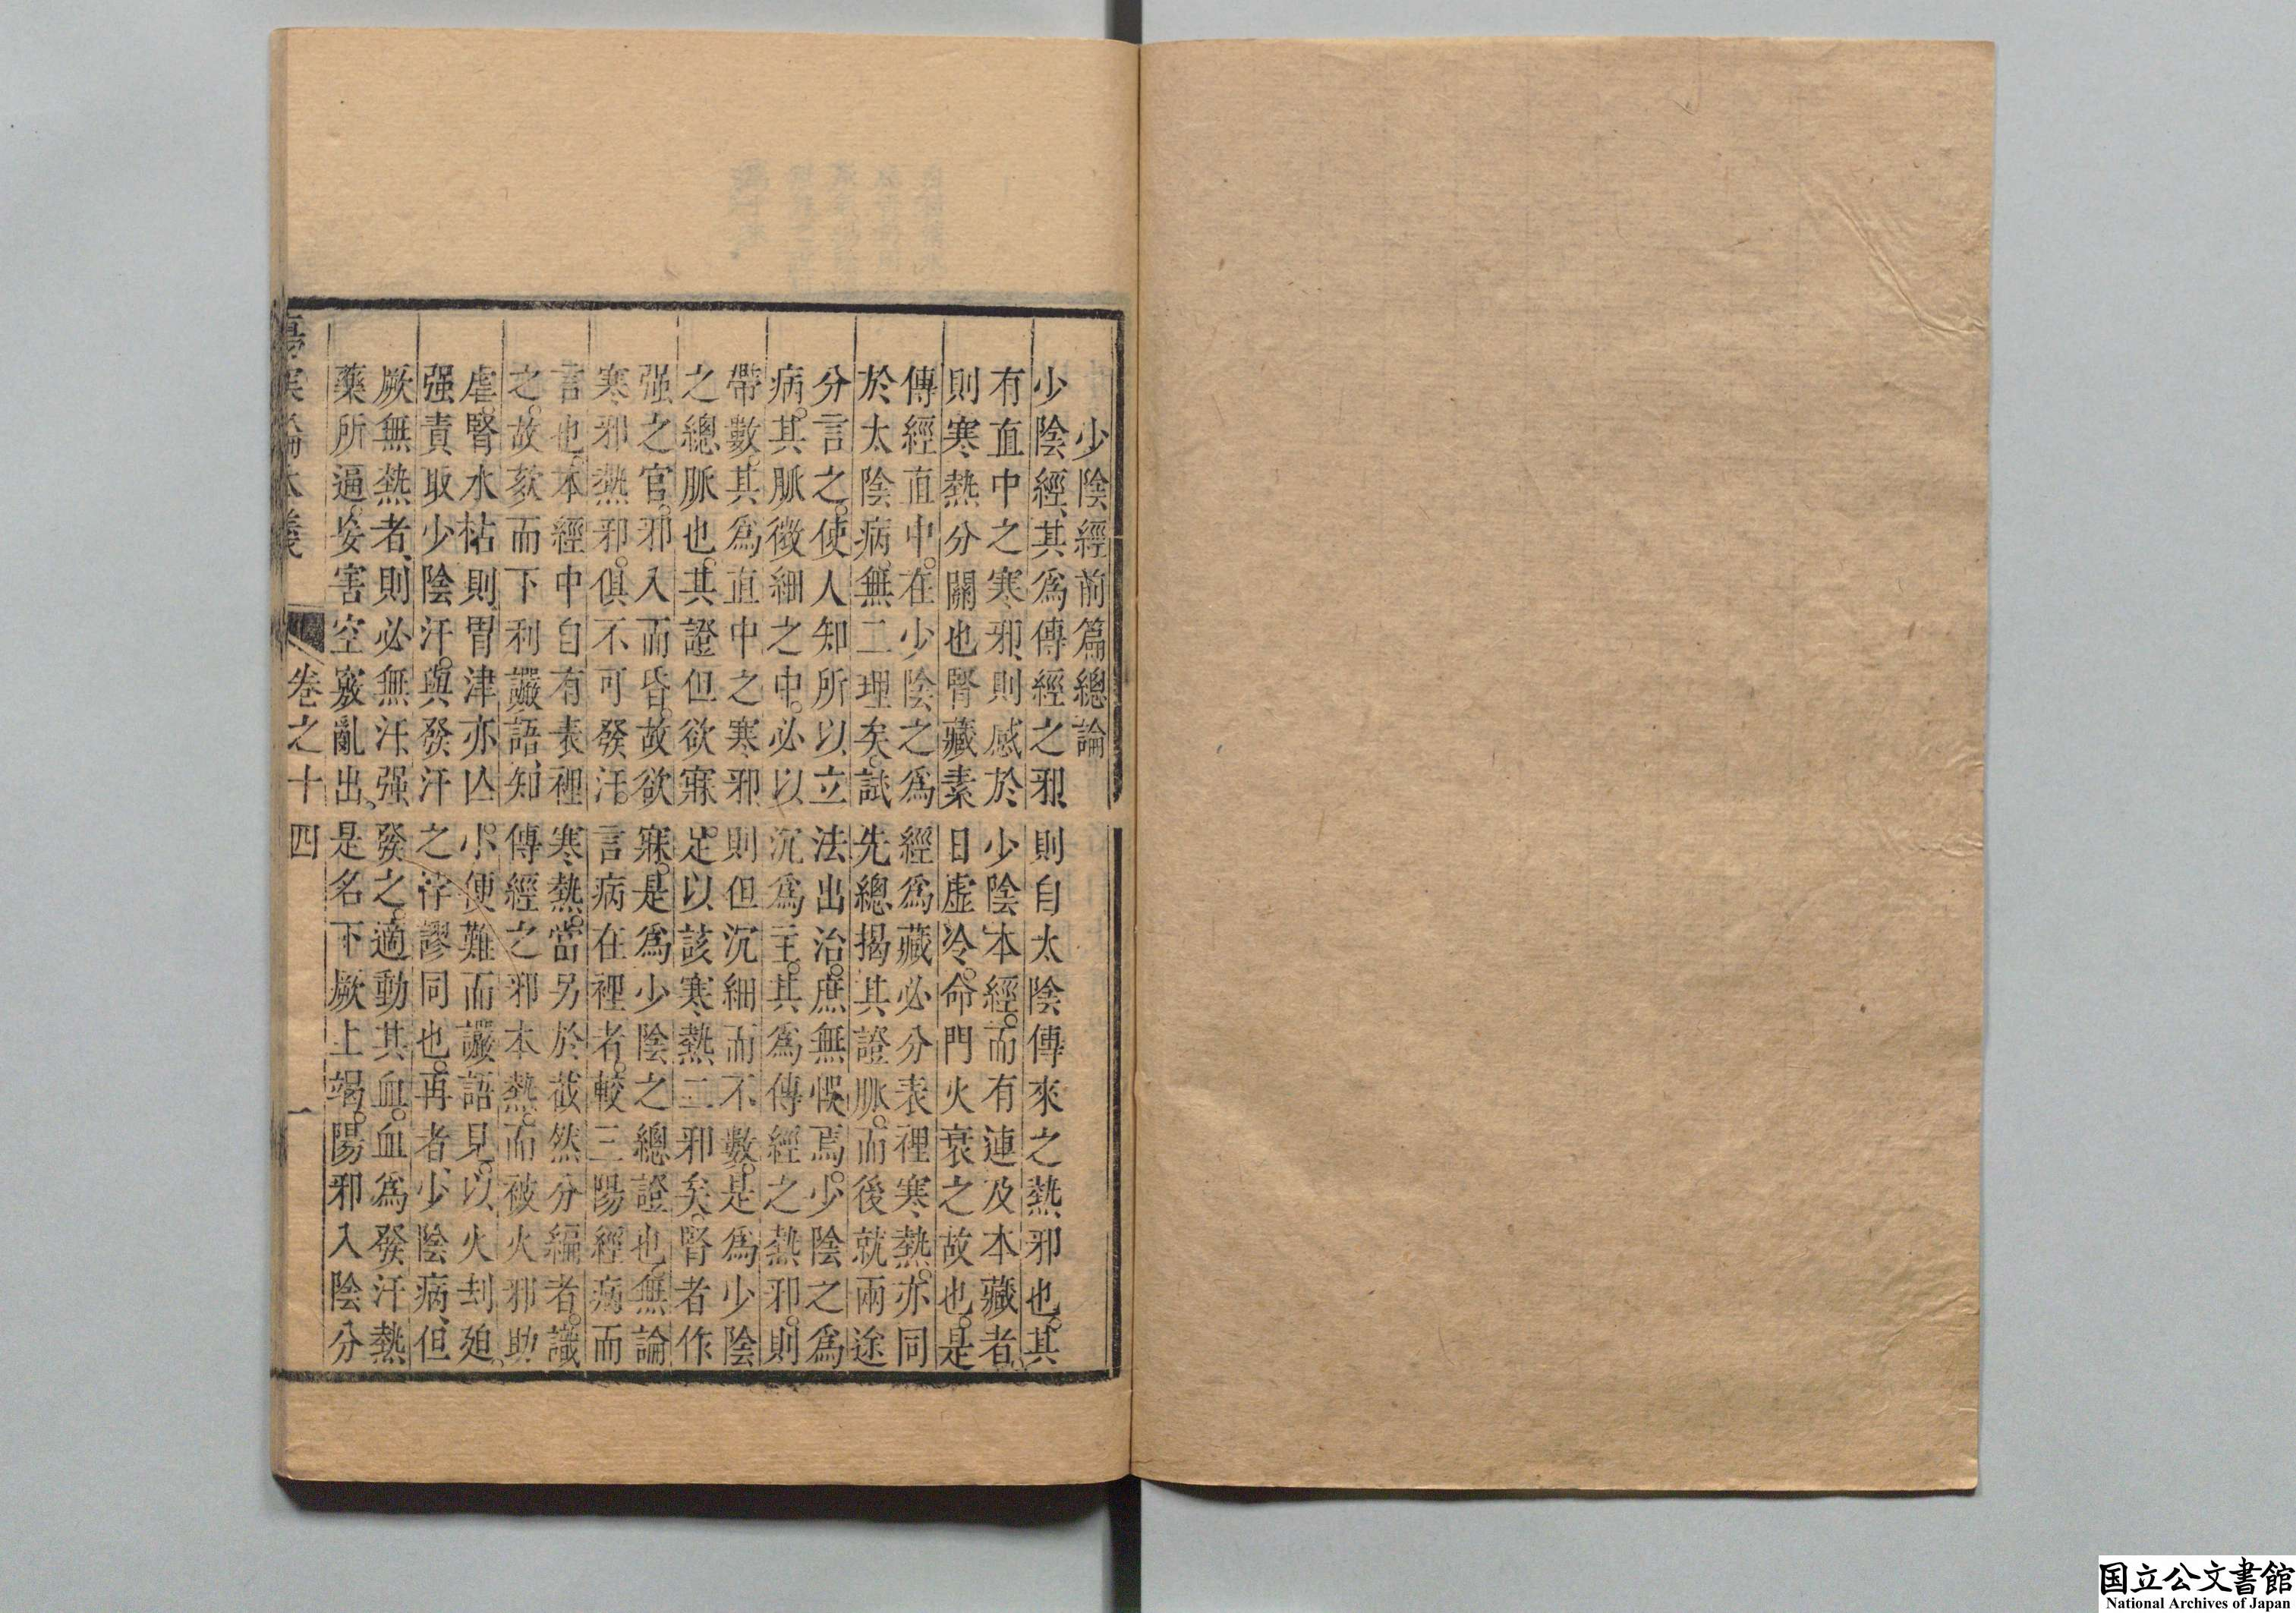 少陰經前篇總論
少陰經、其爲傳經之邪、則自太陰傳來之熱邪也。其
有直中之寒邪、則感於少陰本經。而有連及本藏者。
則寒熱分關也腎藏素日虛冷。命門火衰之故也。是
傳經直中。在少陰之爲經爲藏必分表裡寒熱。亦同
於太陰病。無二理矣。試先總揭其證脈。而後就兩途
分言之。使人知所以立法出治。庶無悞焉。少陰之爲
病。其脈微細之中。必以沉爲主。其爲傳經之熱邪。則
帶數。其爲直中之寒邪則但沉細而不數。是爲少陰
之總脈也。其證但欲寐足。以該寒熱二邪矣。腎者作
强之官。邪入而昏。故欲寐。是爲少陰之總證也。無論
寒邪熱邪。俱不可發汗。言病在裡者。較三陽經病而
言也。本經中自有表裡寒熱。當另於截然分編者。識
之。故欬而下利讝語、知傳經之邪本熱。而被火邪助
虐。腎水枯則胃津亦亾小。便難而讝語見。以火刦廹。
强責取少陰汗。與發汗之悖謬同也。再者、少陰病、但
厥無熱者、則必無汗、强發之。適動其血。血爲發汗熱
藥所逼。妄害空竅亂出、是名下厥上竭。陽邪入陰分
傷寒論本義
卷之十四
一
国立公文書館
National Archives of Japan